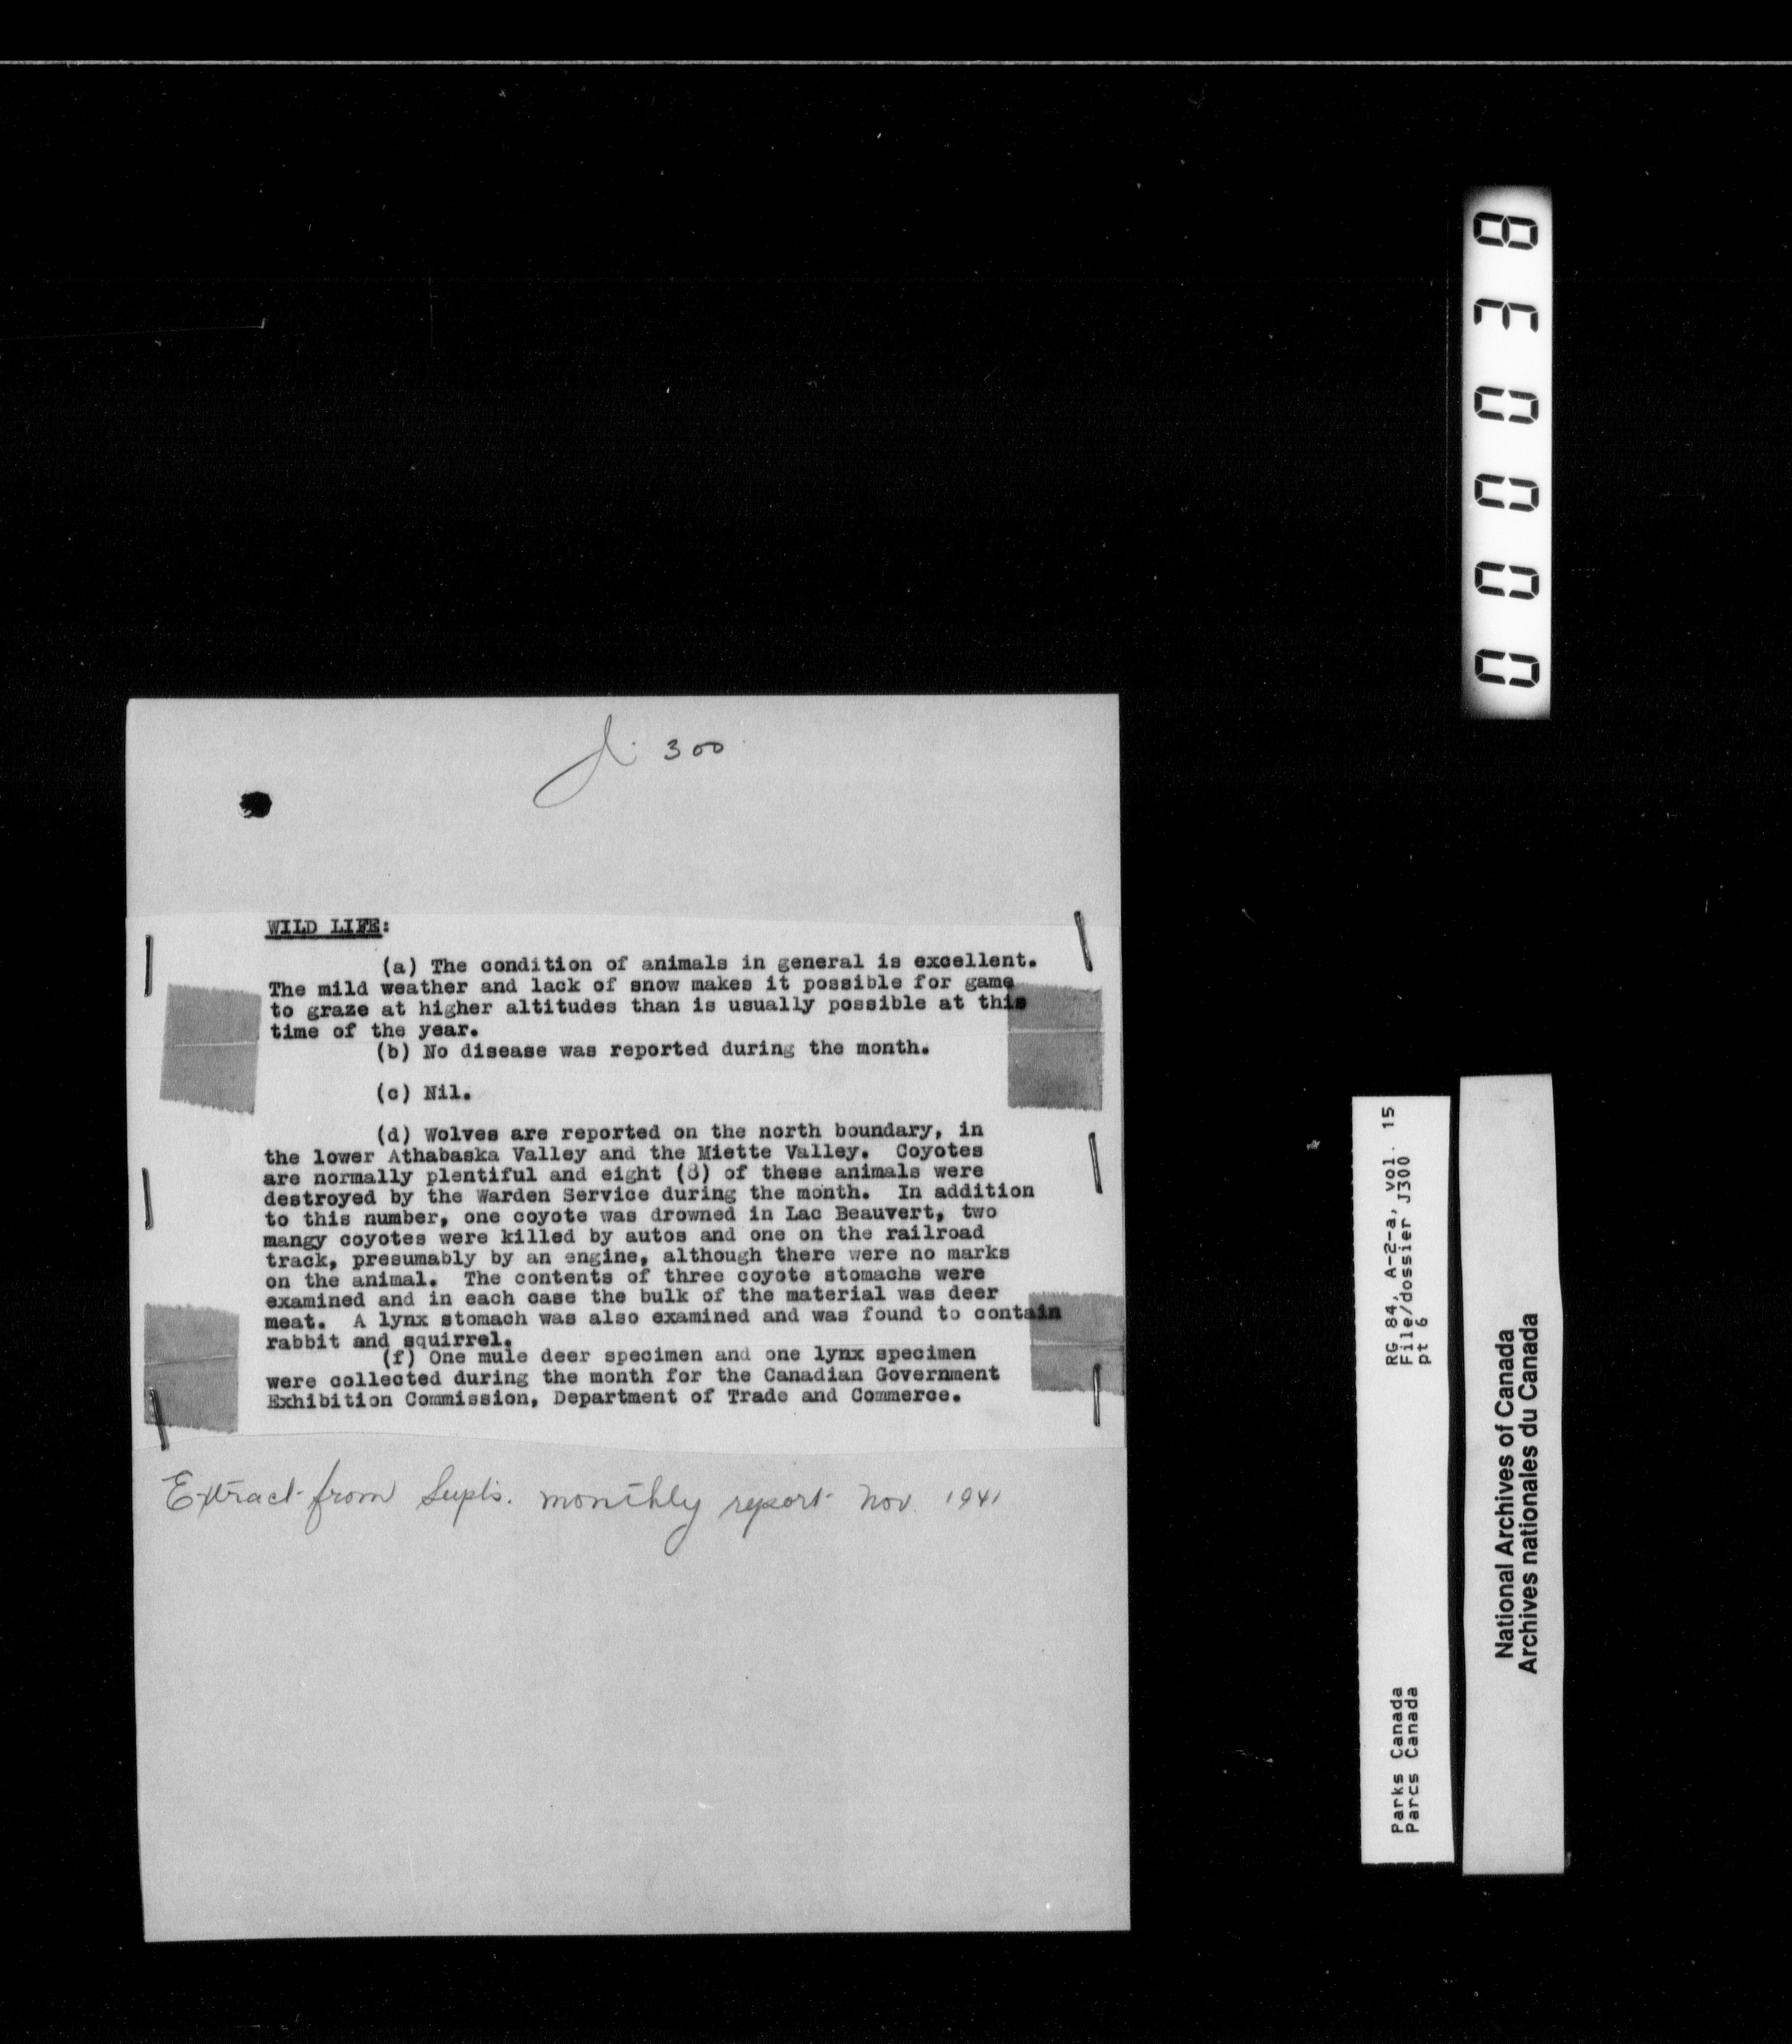 J. 300
WILD LIFE:
(a) The condition of animals in general is excellent.
The mild weather and lack of snow makes it possible for game
to graze at higher altitudes than is usually possible at this
time of the year.
(b) No disease was reported during the month.
(c) Nil.
(d) Wolves are reported on the north boundary, in
the lower Athabaska Valley and the Miette Valley. Coyotes
are normally plentiful and eight (8) of these animals were
destroyed by the Warden Service during the month. In addition
to this number, one coyote was drowned in Lac Beauvert, two
mangy coyotes were killed by autos and one on the railroad
track, presumably by an engine, although there were no marks
on the animal. The contents of three coyote stomachs were
examined and in each case the bulk of the material was deer
meat. A lynx stomach was also examined and was found to contain
rabbit and squirrel.
(f) One mule deer specimen and one lynx specimen
were collected during the month for the Canadian Government
Exhibition Commission, Department of Trade and Commerce.
Extract from Supts. monthly report Nov. 1941
000038
RG 84, A-2-a, vol. 15
File/dossier J300
pt 6
Parks Canada
Parcs Canada
National Archives of Canada
Archives nationales du Canada